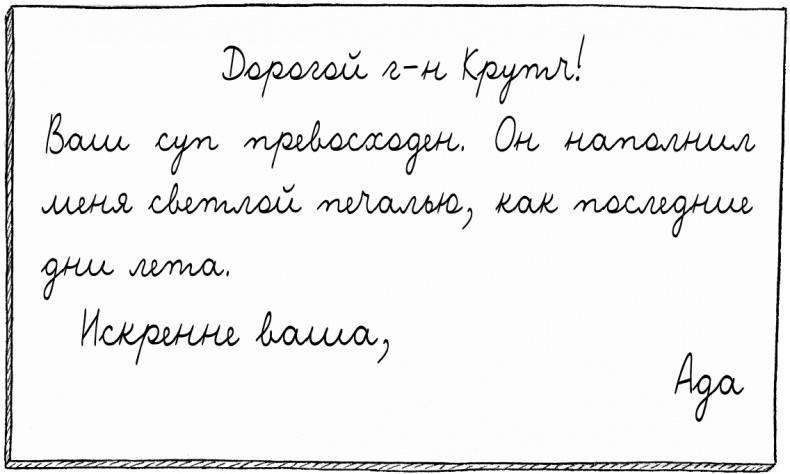 Дорогой г-н Крутч!
Ваш суп превосходен. Он наполнил
меня светлой печалью, как последние
дни лета.
Искренне ваша,
Ада